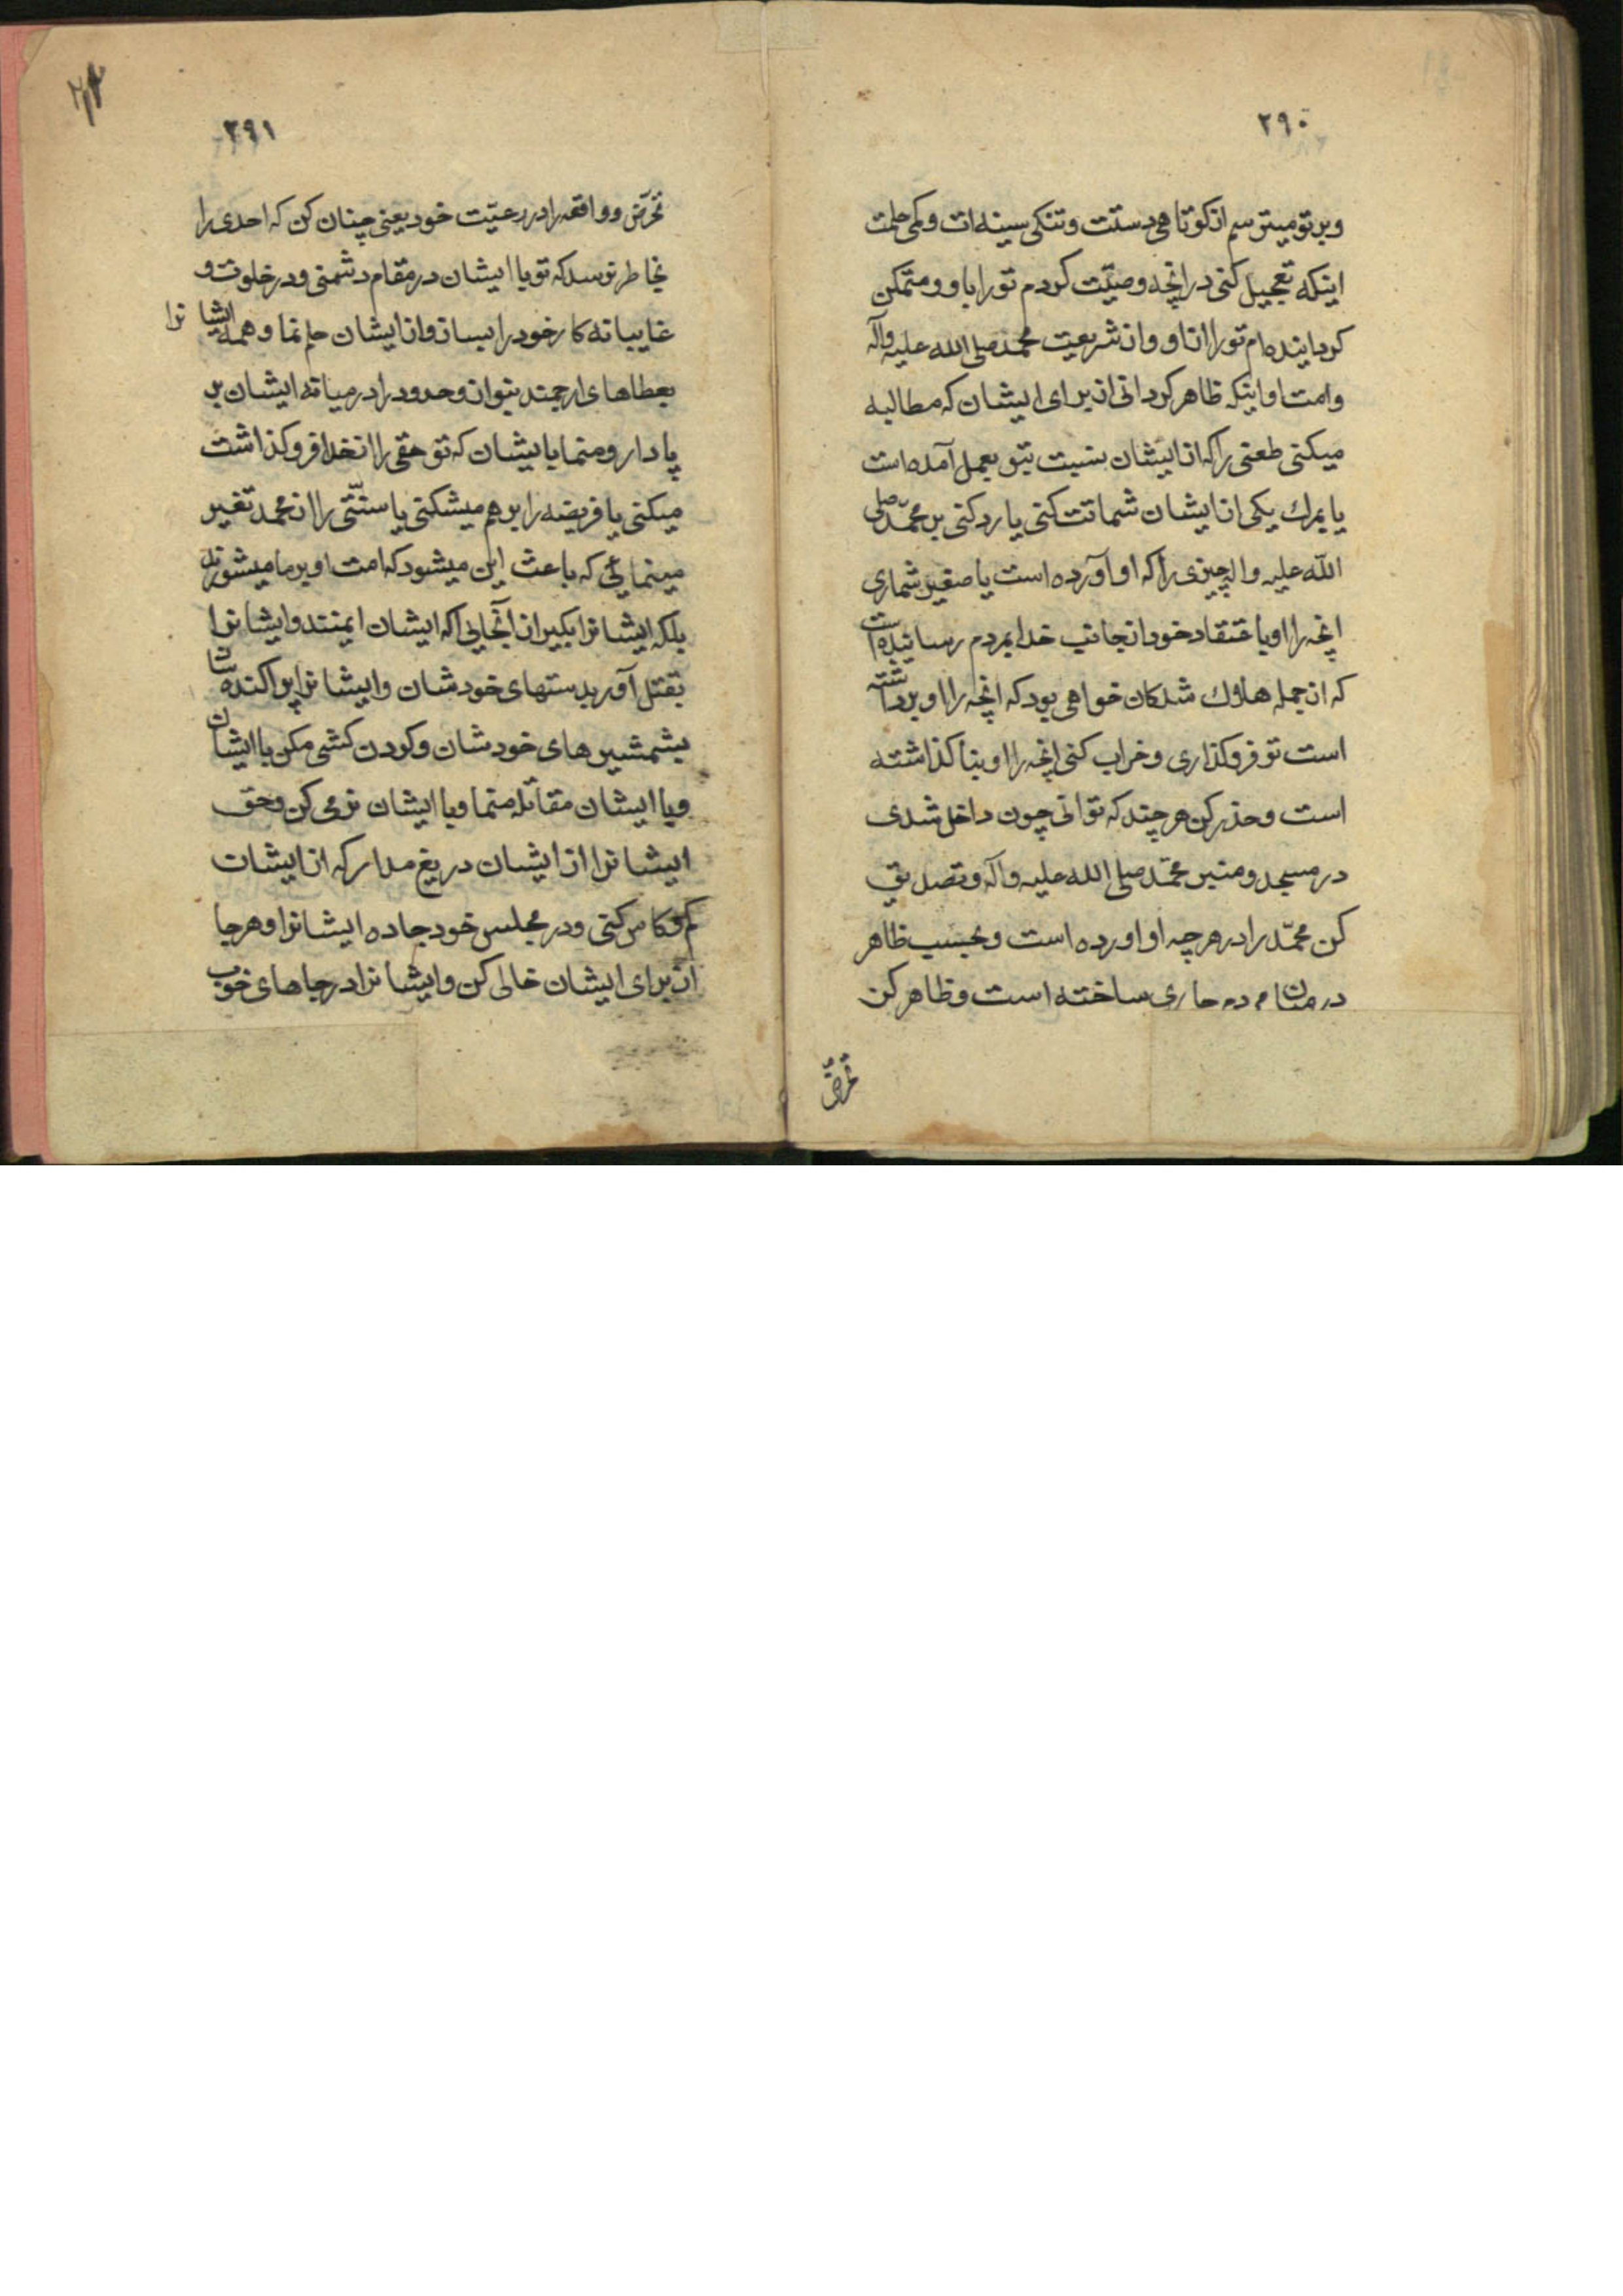 ٢٩٠
و بر تو میترسم از کوتاهی دستت و تنکی سینه ات و کمی حلمت
اینکه تعجیل کنی در انچه وصیّت کردم تو را باو و متمکن
کردانیده ام تو را از او و از شریعت محمد صلی الله علیه وآله
و امت او اینکه ظاهر کردانی از برای ایشان که مطالبه
میکنی طعنی را که از ایشان نسبت بتو بعمل آمده است
یا بمرك یکی از ایشان شماتت کنی یا رد کنی بر محمّد صلی
الله علیه واله چیزی را که او آورده است یا صغیر شماری
انچه را او باعتقاد خود از جانب خدا بمردم رسانیده است
که از جمله هلاك شدکان خواهی بود که انچه را او برداشته
است تو فرو کذاری و خراب کنی انچه را او بنا کذاشته
است و حذر کن هر چند که توانی چون داخل شدی
در مسجد و منبر محمّد صلی الله علیه وآله و تصدیق
کن محمّد را در هرچه او اورده است و بحسب ظاهر
در میان مردم جاری ساخته است و ظاهر کن
تحرّض
٢٩١
تحرّض و واقعه را در رعیّت خود یعنی چنان کن که احدی را
بخاطر نرسد که تو با ایشان در مقام دشمنی و در خلوت و
غایبانه کار خود را بساز و از ایشان حلم نما و همه ایشانرا
بعطاهای ارجمند بنواز و حدود را در میانه ایشان بر
پا دار و منما بایشان که تو حقی را از خدا فرو کذاشت
میکنی یا فریضه را بر هم میشکنی یا سنّتی را از محمد تغیر
مینمائی که باعث این میشود که امت او بر ما میشورند
بلکه ایشانرا بکیر از آنجایی که ایشان ایمنند و ایشانرا
بقتل آور بدستهای خودشان و ایشانرا پراکنده ساز
بشمشیرهای خودشان و کردن کشی مکن با ایشان
و با ایشان مقاتله منما و با ایشان نرمی کن و حق
ایشانرا از ایشان دریغ مدار که از ایشان
کم و کاس کنی و در مجلس خود جا ده ایشانرا و هر جا
از برای ایشان خالی کن و ایشانرا در جاهای خوب